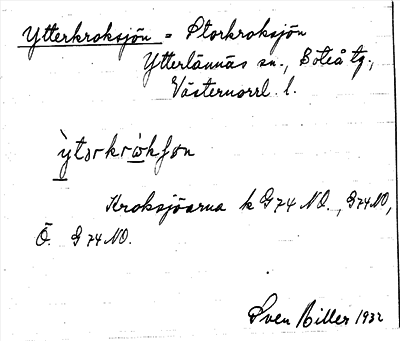 Ytterkroksjön = Storkroksjön
Ytterlännäs sn., Boteå tg.,
Västernorrl. l.
ỳtərkrὼkʃøn
Kroksjöarna k G74 NO., G74NO,
Ö. G 74 NO.
Sven Biller 1932